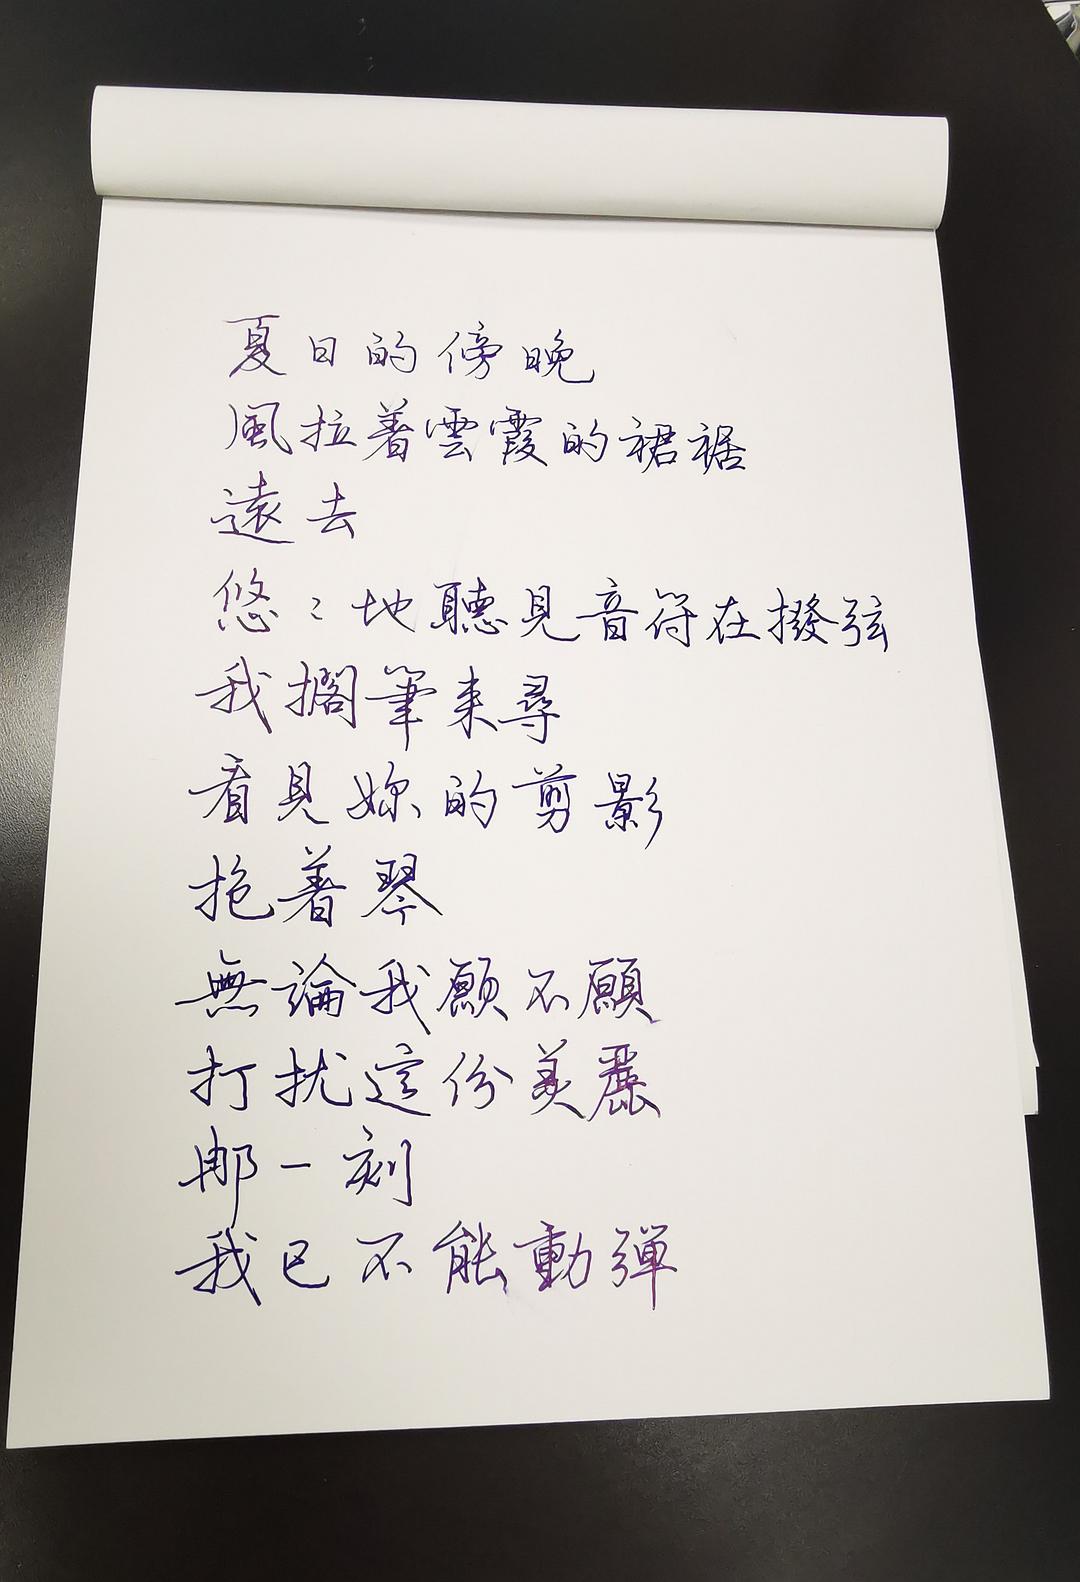 夏日的傍晚
風拉着雲霞的裙裾
遠去
悠々地聽見音符在撥弦
我擱筆來尋
看見妳的剪影
抱着琴
無論我願不願
打扰這份美麗
那一刻
我已不能動彈